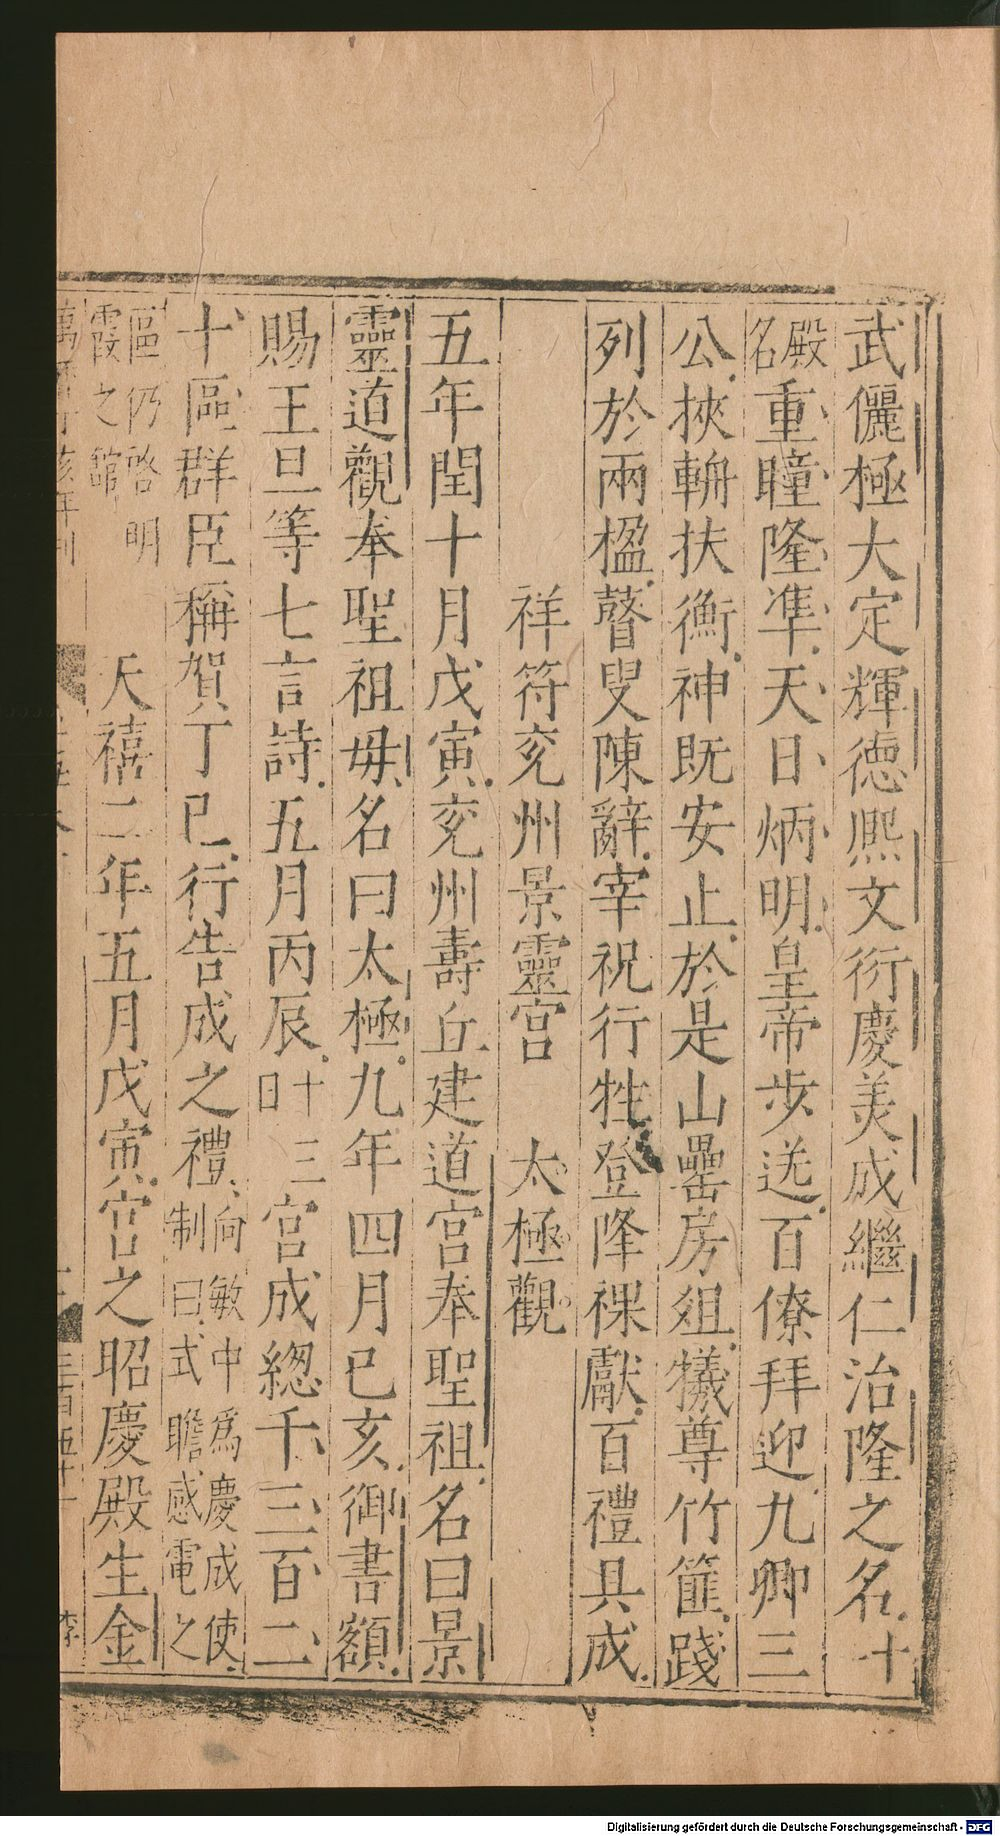 武儷極大定輝德熈文衍慶美成繼仁治隆之名十
殿名重瞳隆凖天日炳明皇帝步送百僚拜迎九卿三
公挾輈扶衡神既安止於是山罍房俎犧尊竹篚踐
列於兩楹瞽叟陳辭宰祝行牲登降祼獻百禮具成
祥符兖州景靈宫　太極觀
五年閏十月戊寅兖州壽丘建道宫奉聖祖名曰景
靈道觀奉聖祖毋名曰太極九年四月已亥御書額
賜王旦等七言詩五月丙辰十三日宫成緫千三百二
十區群臣稱賀丁已行告成之禮向敏中爲慶成使制曰式瞻感電之
區仍啓明霞之館　天禧二年五月戊寅宫之昭慶殿生金
李
Digitalisierung gefördert durch die Deutsche Forschungsgemeinschaft - DFG